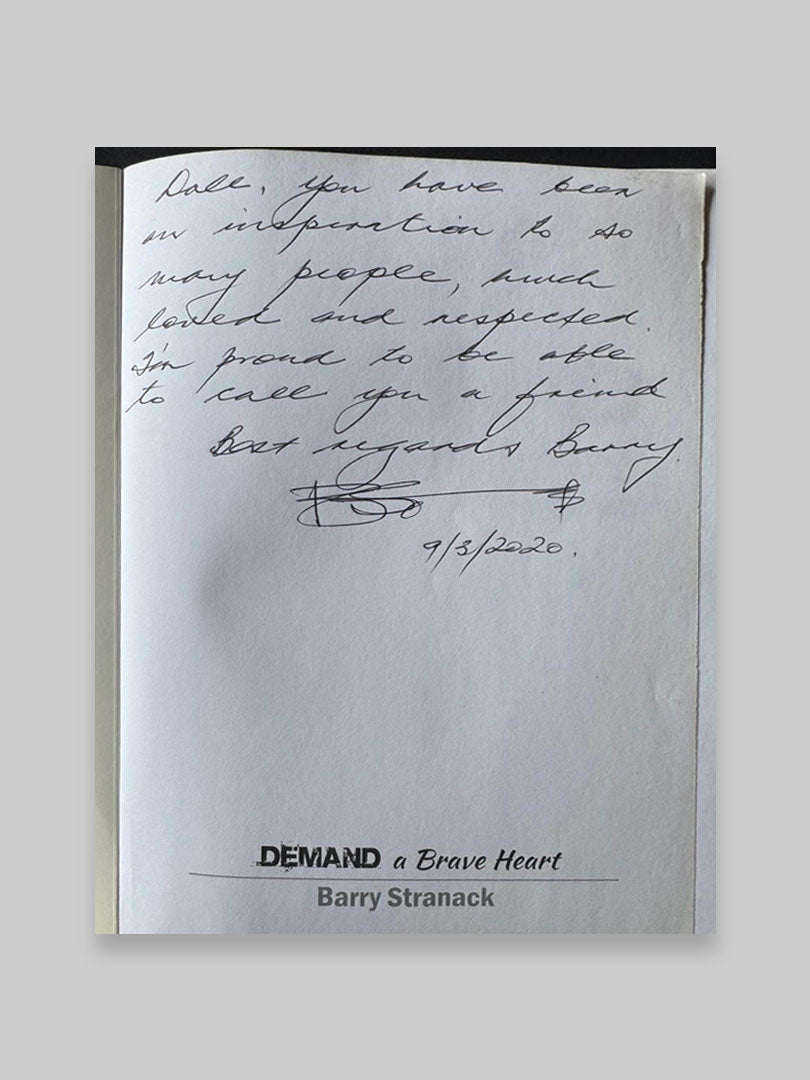 Dale, you have been
an inspiration to so
many people, much
loved and respected.
I'm proud to be able
to call you a friend
Best regards Barry.
9/3/2020.
DEMAND a Brave Heart
Barry Stranack